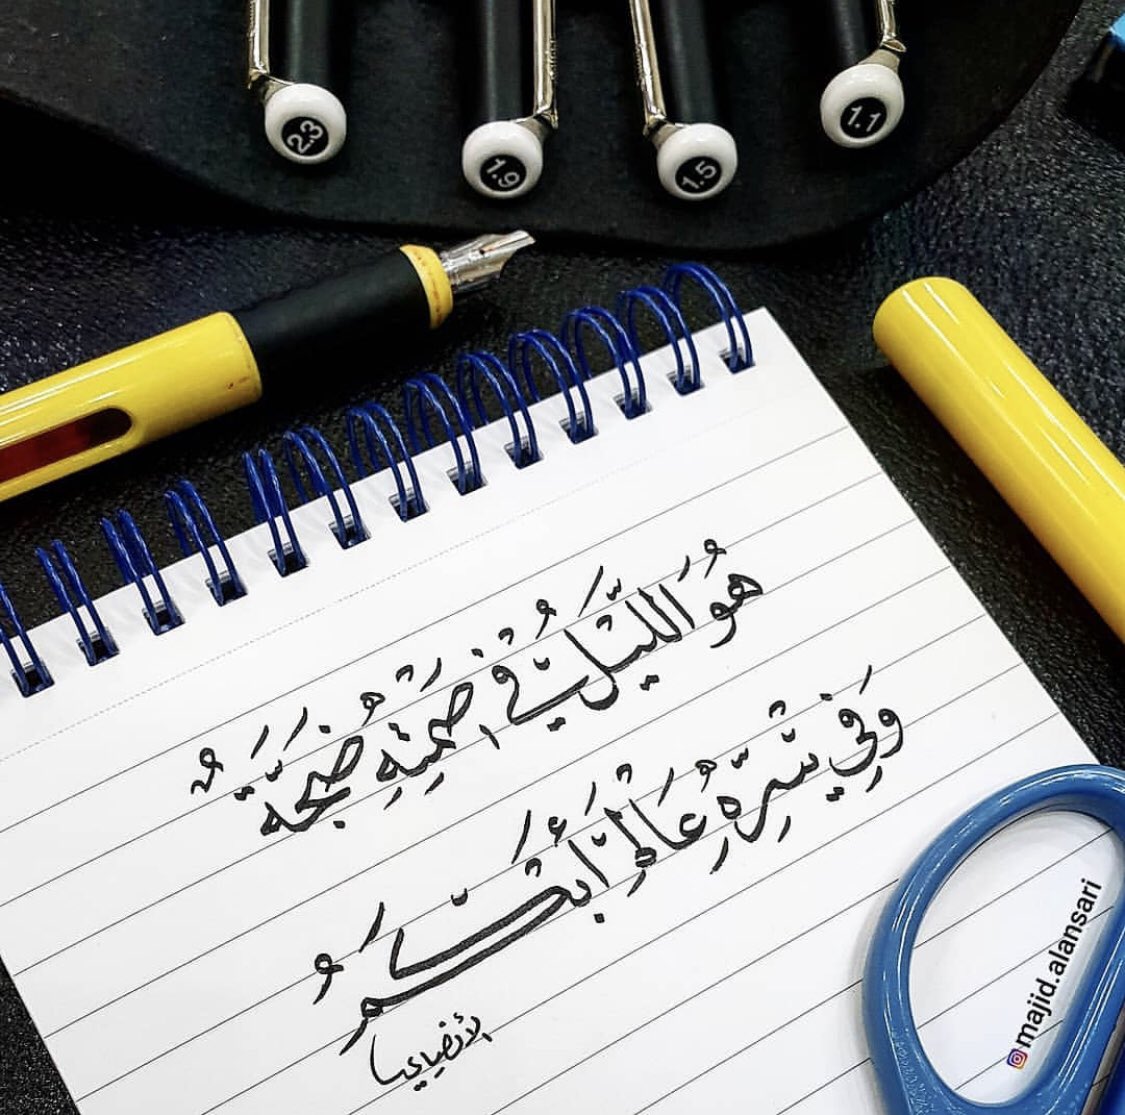 2.3
1.9
1.5
1.1
هُوَ اللَّيْلُ فِي صَمْتِهِ ضَجَّةٌ
وَفِي سِرِّهِ عَالَمٌ أَبْكَمُ
الأنصاري
majid.alansari